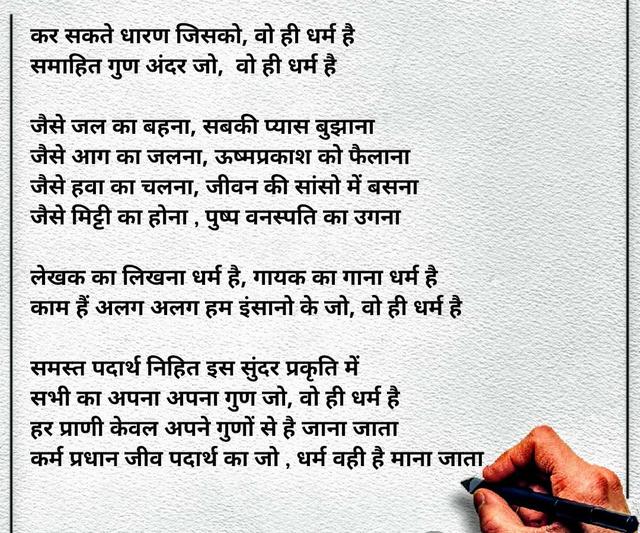 कर सकते धारण जिसको, वो ही धर्म है
समाहित गुण अंदर जो,  वो ही धर्म है
जैसे जल का बहना, सबकी प्यास बुझाना
जैसे आग का जलना, ऊष्मप्रकाश को फैलाना
जैसे हवा का चलना, जीवन की सांसो में बसना
जैसे मिट्टी का होना , पुष्प वनस्पति का उगना
लेखक का लिखना धर्म है, गायक का गाना धर्म है
काम हैं अलग अलग हम इंसानो के जो, वो ही धर्म है
समस्त पदार्थ निहित इस सुंदर प्रकृति में
सभी का अपना अपना गुण जो, वो ही धर्म है
हर प्राणी केवल अपने गुणों से है जाना जाता
कर्म प्रधान जीव पदार्थ का जो , धर्म वही है माना जाता